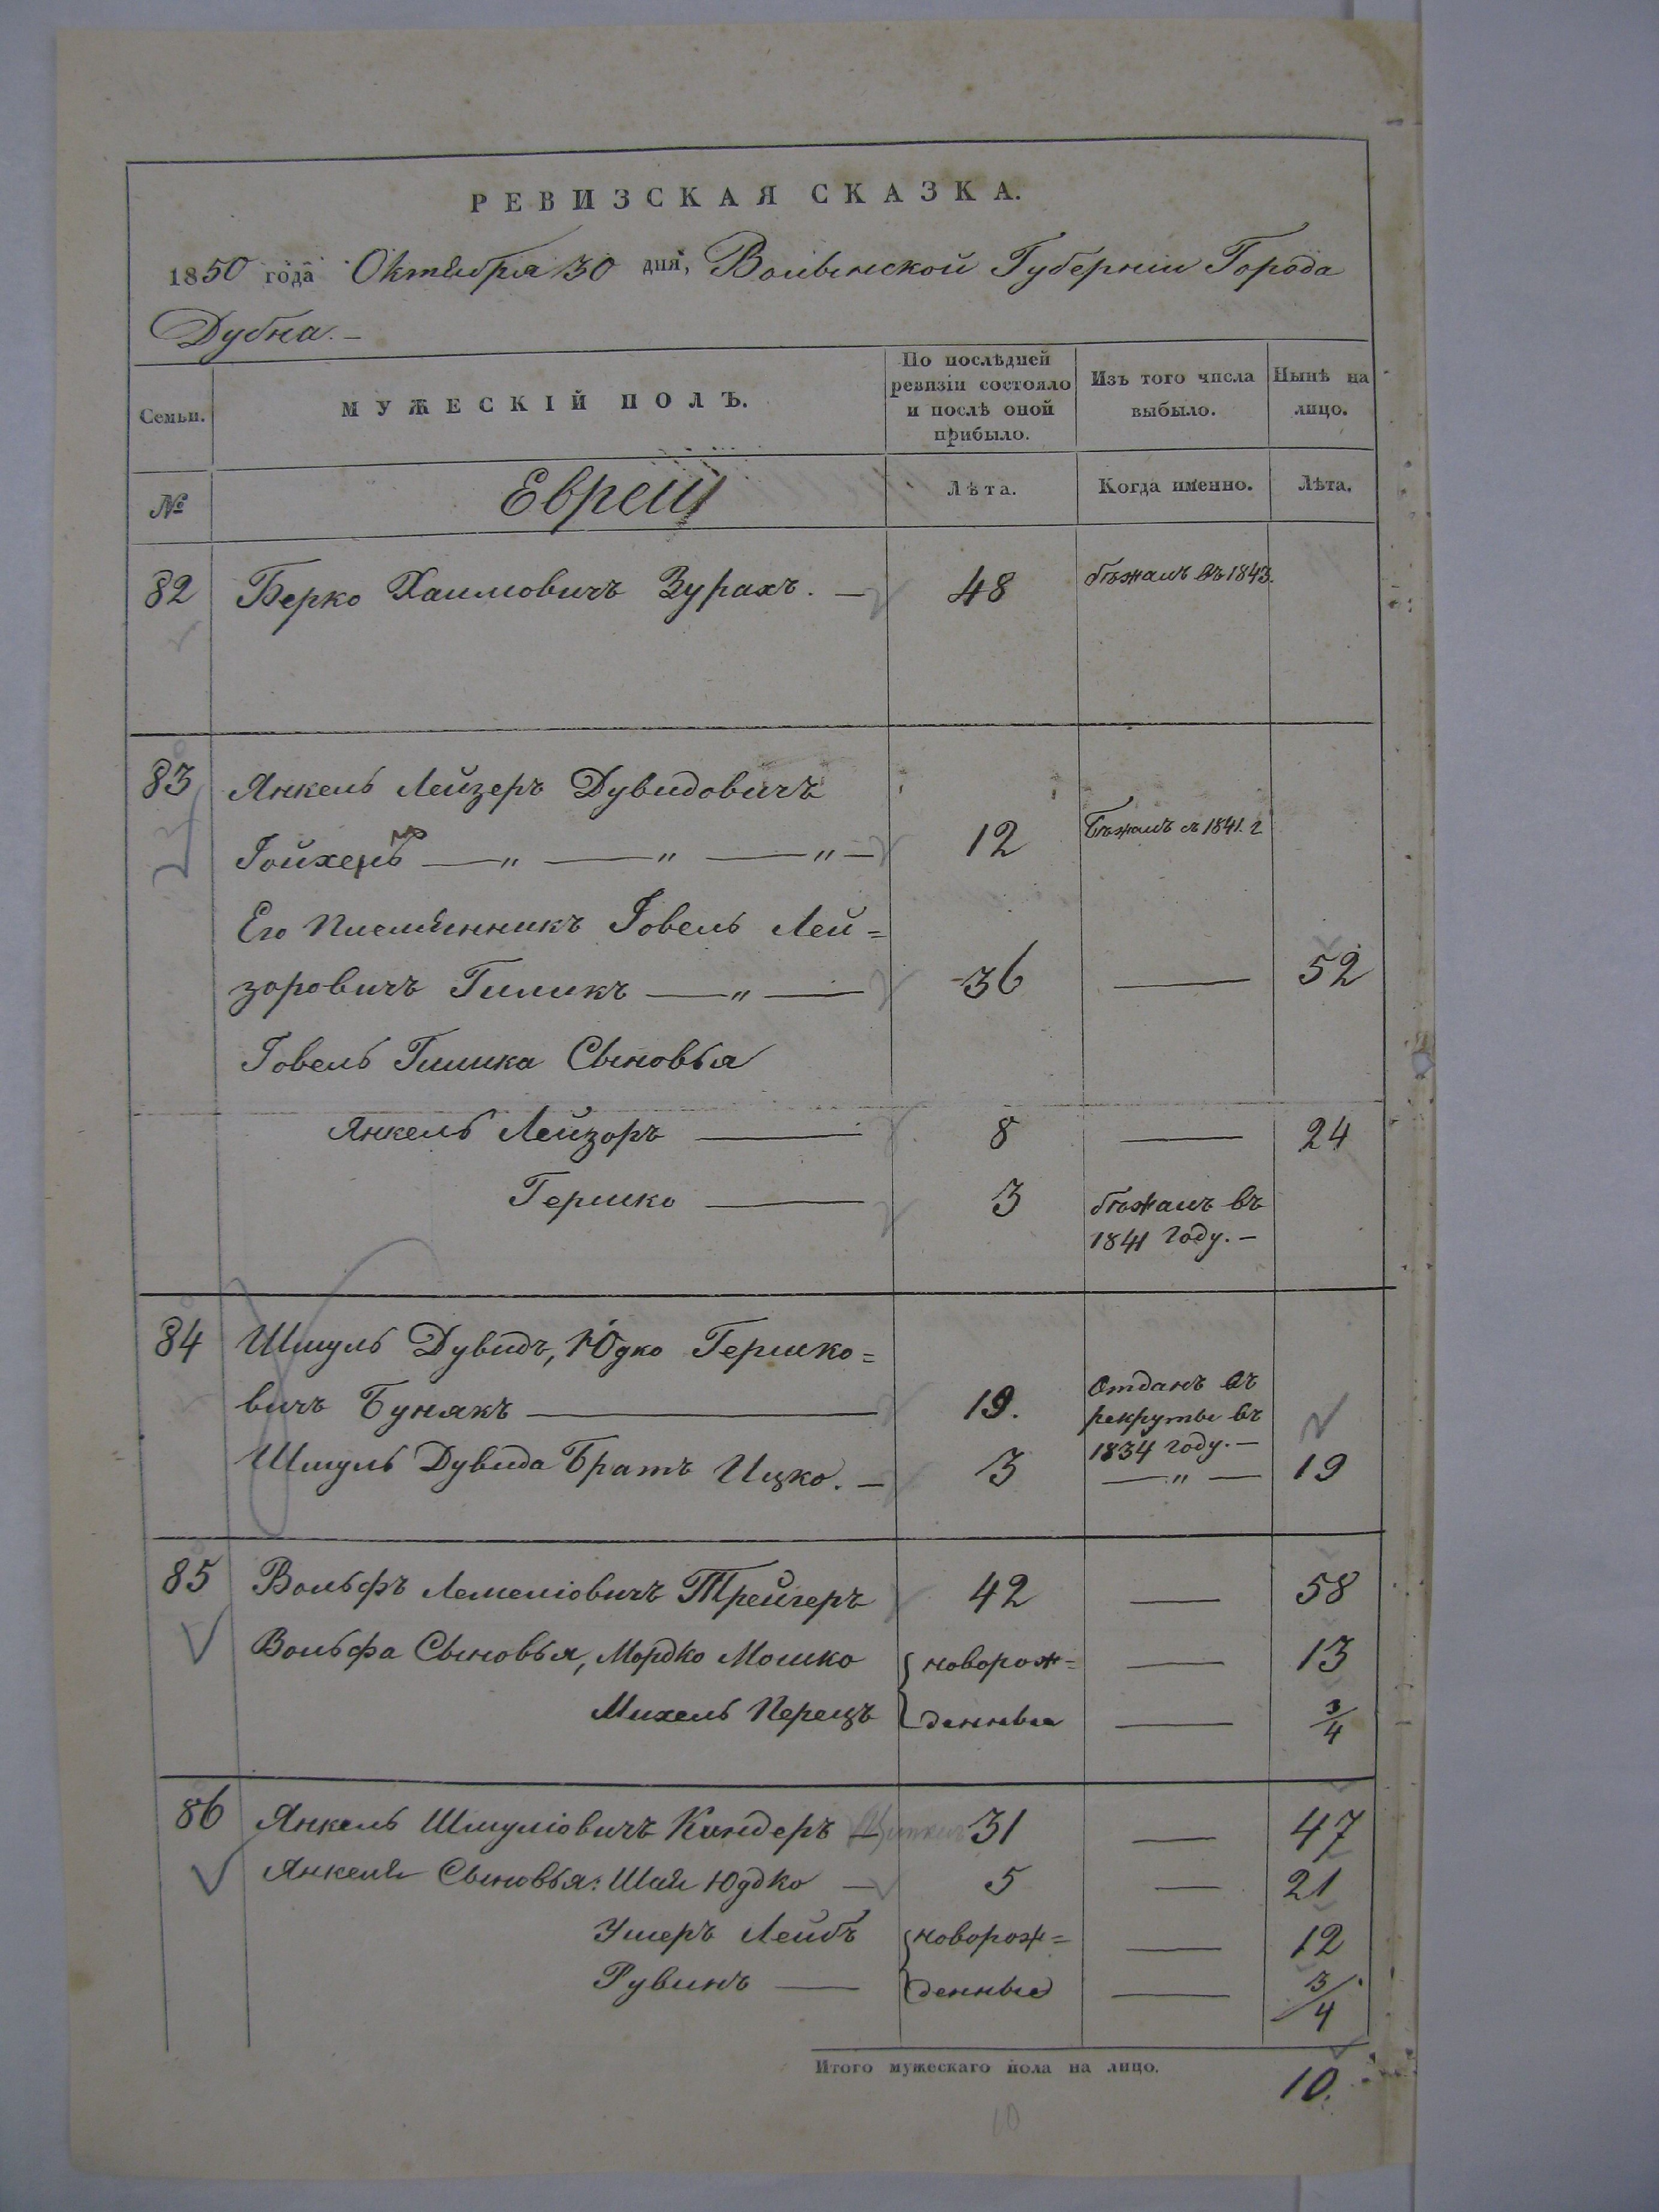 РЕВИЗСКАЯ СКАЗКА.
1850 года Октября 30 дня, Волынской Губерніи Города
Дубна. —
Семьи. МУЖЕСКІЙ ПОЛЪ. По послѣдней ревизіи состояло и послѣ оной прибыло. Изъ того числа выбыло. Нынѣ на лицо.
№ Евреи Лѣта. Когда именно. Лѣта.
82 Берко Хаимовичъ Зурахъ. — 48 бѣжалъ въ 1843.
83 Янкель Лейзеръ Дувидовичъ
Гойхеръ — „ — „ — „ — 12 Бѣжалъ въ 1841. г
Его Племянникъ Говель Лей=
зоровичъ Гиликъ — „ — 36 — 52
Говель Гилика Сыновья
Янкель Лейзоръ — 8 — 24
Гершко — 3 бѣжалъ въ
1841 году. —
84 Шмуль Дувидъ, Юдко Гершко=
вичъ Бунякъ — 19. Отданъ въ
рекруты въ
1834 году. —
Шмуль Дувида Братъ Ицко. — 3 — „ — 19
85 Вольфъ Лемеліовичъ Трейгеръ 42 — 58
Вольфа Сыновья, Мордко Мошко новорож= — 13
Михель Перецъ денные — 3/4
86 Янкель Шмуліовичъ Киндеръ — 31 — 47
Янкеля Сыновья: Шая Юдко — 5 — 21
Ушеръ Лейбъ новорож= — 12
Рувинъ — денные — 3/4
Итого мужескаго пола на лицо. 10.
10